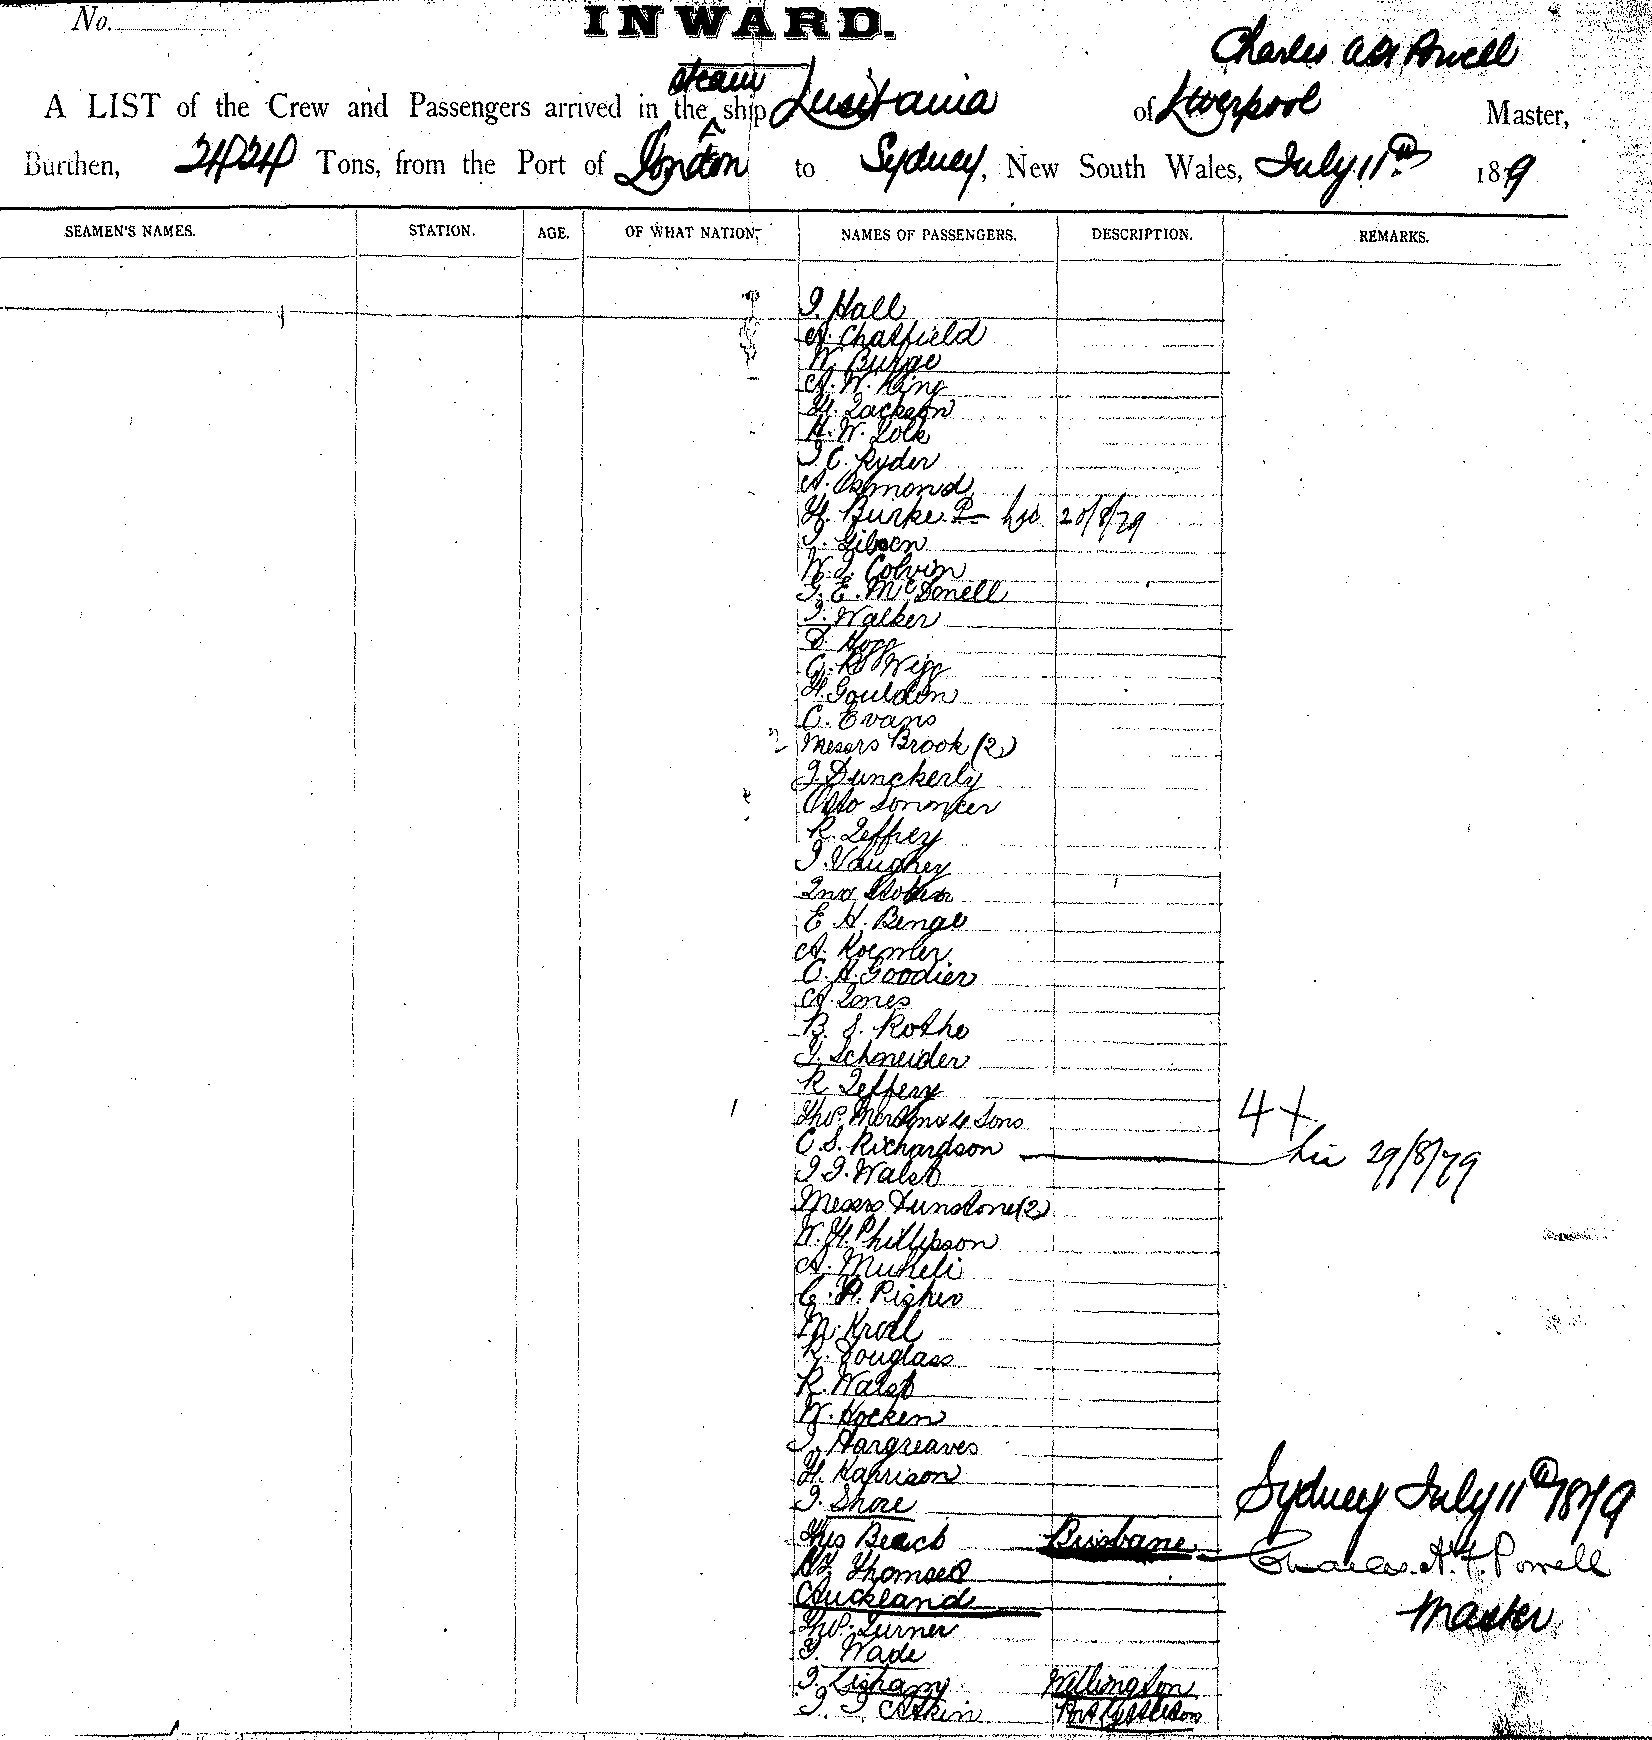 No.
INWARD.
Charles Powell
steam
A LIST of the Crew and Passengers arrived in the ship Lusitania of Liverpool Master,
Burthen, 2424 Tons, from the Port of London to Sydney, New South Wales, July 11th 1879
SEAMEN'S NAMES. STATION. AGE. OF WHAT NATION. NAMES OF PASSENGERS. DESCRIPTION. REMARKS.
J. Hall
A. Chatfield
W. Burge
A. W. King
H. Jackson
H. W. Lolk
J. C. Ryder
A. Osmond
H. Burke 20/8/79
J. Gibson
W. J. Colvin
J. E. McDonell
J. Walker
D. Hogg
C. Wigg
H. Gouldon
C. Evans
2 Messrs Brook (2)
J. Dunckerly
Otto Sommer
R. Jeffrey
J. Vaughey
E. H. Benge
A. Koemler
C. H. Goodier
A. Jones
B. S. Rothe
J. Schneider
R. Jeffery
Thos. & Sons 4 +
C. S. Richardson 29/8/79
J. J. Walsh
Messrs Dunstone (2)
W. H. Phillipson
A. Muheli
C. R. Risher
M. Kroll
R. Douglass
R. Walsh
W. Hocken
J. Hargreaves
H. Harrison
J. Shore
Sydney July 11th 1879
Thos Beach Brisbane
Charles A. F. Powell
Thomsed
Auckland
Master
Thos. Turner
J. Wade
J. Wellington
J. J. Atkin